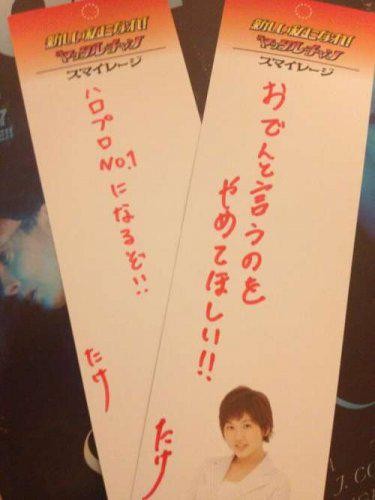 新しい私になれ!
ヤッタルチャン
スマイレージ
ハロプロ
NO.1
になるぞ!!
たけ
新しい私になれ!
ヤッタルチャン
スマイレージ
おでんと言うのを
やめてほしい!!
たけ
J. CO